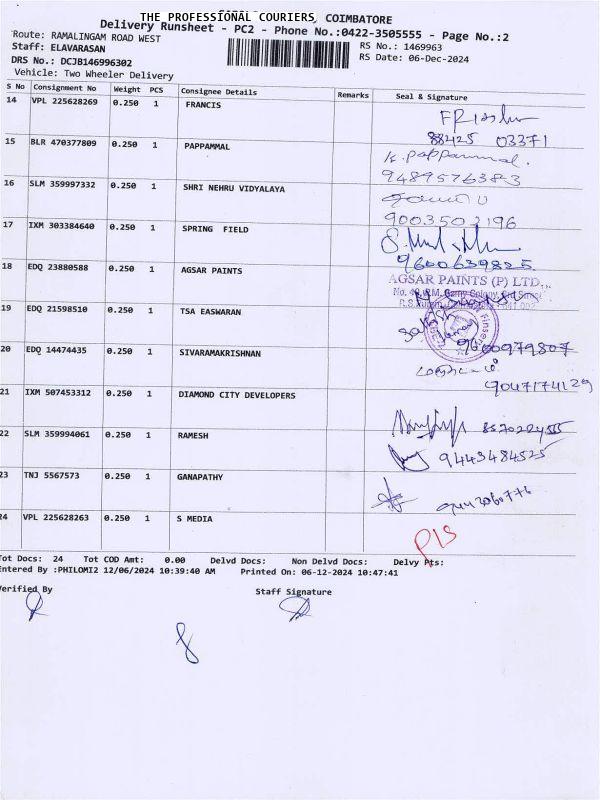 THE PROFESSIONAL COURIERS, COIMBATORE
Delivery Runsheet - PC2 - Phone No.:0422-3505555 - Page No.:2
Route: RAMALINGAM ROAD WEST
RS No.: 1469963
Staff: ELAVARASAN
RS Date: 06-Dec-2024
DRS No.: DCJB146996302
Vehicle: Two Wheeler Delivery
S No Consignment No Weight PCS Consignee Details Remarks Seal & Signature
14 VPL 225628269 0.250 1 FRANCIS
88425 03371
15 BLR 470377809 0.250 1 PAPPAMMAL K. pappammal.
9489576383
16 SLM 359997332 0.250 1 SHRI NEHRU VIDYALAYA
9003502196
17 IXM 303384640 0.250 1 SPRING FIELD
9600639825
18 EDQ 23880588 0.250 1 AGSAR PAINTS AGSAR PAINTS (P) LTD.,
19 EDQ 21598510 0.250 1 TSA EASWARAN
9600979807
20 EDQ 14474435 1 0.250 SIVARAMAKRISHNAN
9047174129
21 IXM 507453312 0.250 1 DIAMOND CITY DEVELOPERS
22 SLM 359994061 0.250 1 RAMESH 9443484525
23 TNJ 5567573 0.250 1 GANAPATHY
24 VPL 225628263 0.250 1 S MEDIA
Tot Docs: 24 Tot COD Amt: 0.00 Delvd Docs: Non Delvd Docs: Delvy Pts:
Entered By :PHILOMI2 12/06/2024 10:39:40 AM Printed On: 06-12-2024 10:47:41
Verified By Staff Signature